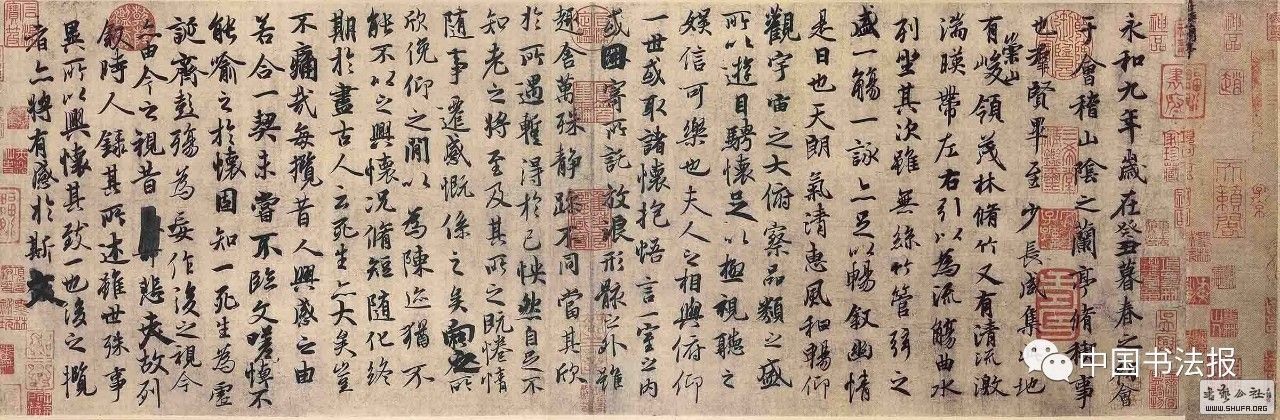 永和九年歲在癸丑暮春之初會
于會稽山陰之蘭亭脩稧事
也羣賢畢至少長咸集此地
有崇山峻領茂林脩竹又有清流激
湍暎帶左右引以為流觴曲水
列坐其次雖無絲竹管弦之
盛一觴一詠亦足以暢叙幽情
是日也天朗氣清惠風和暢仰
觀宇宙之大俯察品類之盛
所以遊目騁懷足以極視聽之
娛信可樂也夫人之相與俯仰
一世或取諸懷抱悟言一室之內
或因寄所託放浪形骸之外雖
趣舍萬殊静躁不同當其欣
於所遇蹔得於己怏然自足不
知老之將至及其所之既惓情
隨事遷感慨係之矣向之所
欣俛仰之閒以為陳迹猶不
能不以之興懷況脩短隨化終
期於盡古人云死生亦大矣豈
不痛哉每攬昔人興感之由
若合一契未嘗不臨文嗟悼不
能喻之於懷固知一死生為虛
誕齊彭殤為妄作後之視今
亦由今之視昔悲夫故列
叙時人錄其所述雖世殊事
異所以興懷其致一也後之攬
者亦將有感於斯文
中国书法报
书艺公社
WWW.SHUFA.ORG